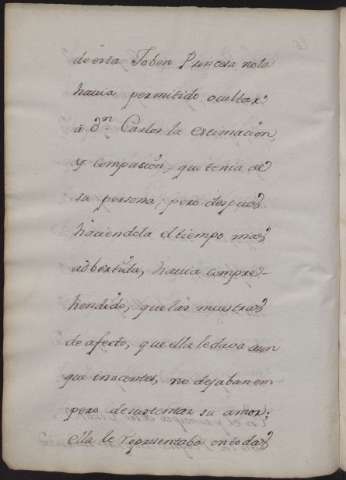 de esta Joben Princesa no le
havia permitido ocultar
á Dn. Carlos la estimacion,
y compasion, que tenia de
su persona; pero despues
haciendola el tiempo mas
adbertida, havia compre-
hendido, que las muestras
de afecto, que ella le dava aun
que inocentes, no dejaban em
pero de su amor;
ella le representaba en todas